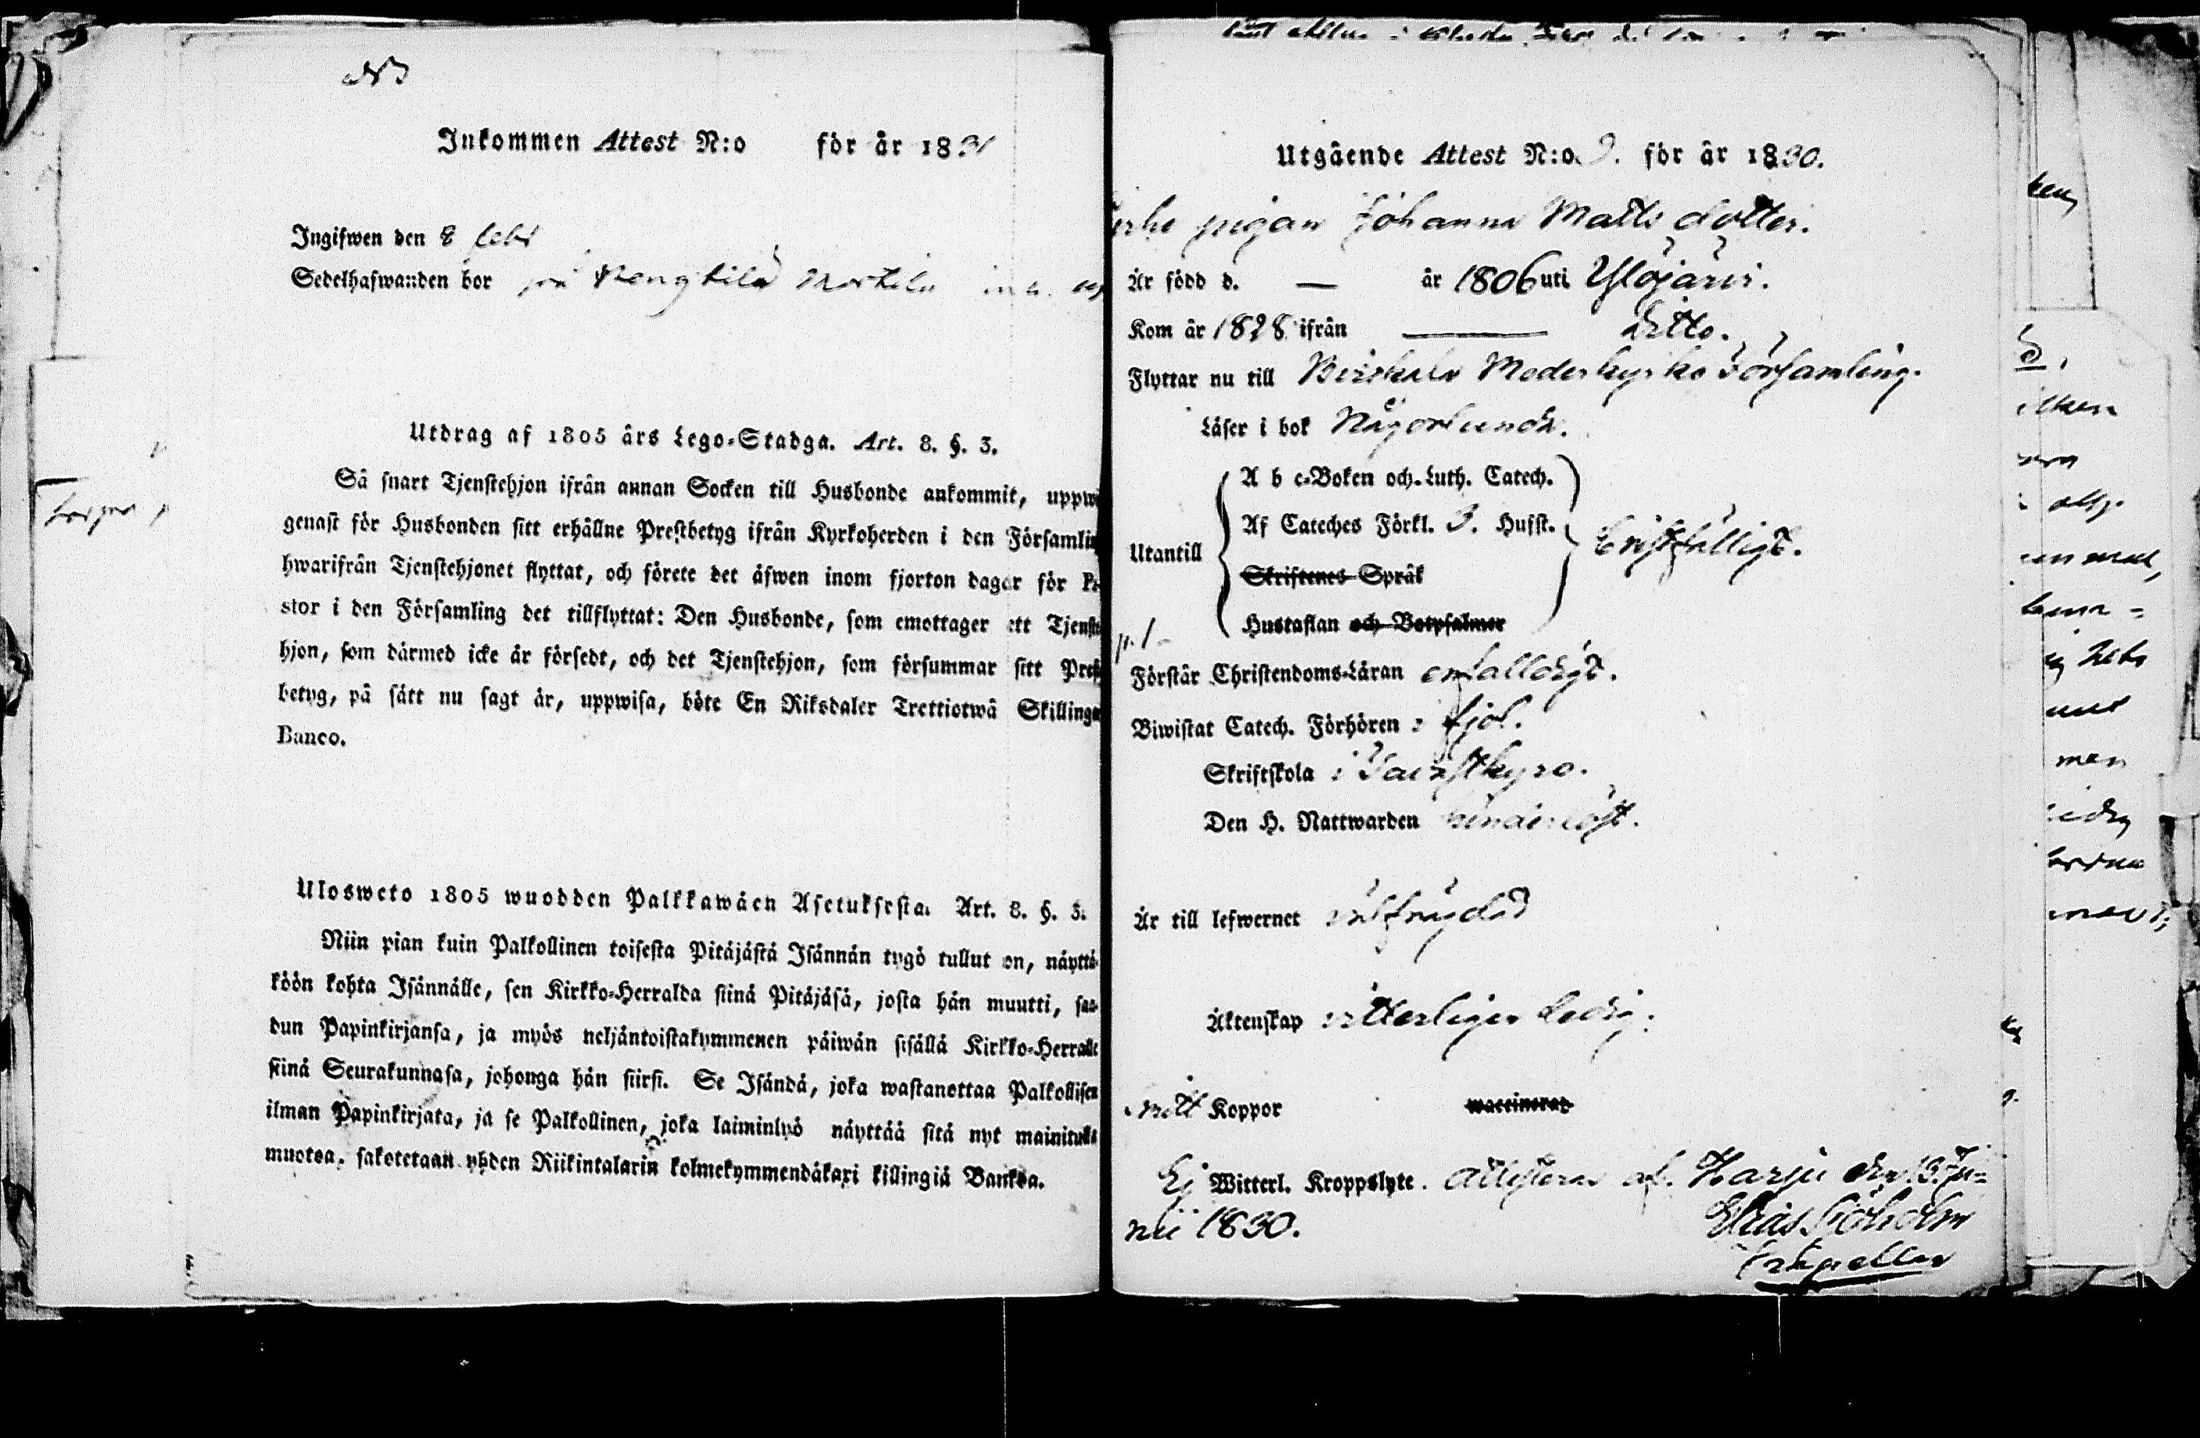 Inkommen Attest N:o för år 1831
Ingifwen den 8 Febr
Sedelhafwanden bor på
Utdrag af 1805 års Lego-Stadga. Art. 8. §. 3.
Så snart Tjenstehjon ifrån annan Socken till Husbonde ankommit, uppwi
genast för Husbonden sitt erhållne Prestbetyg ifrån Kyrkoherden i den Församlin
hwarifrån Tjenstehjonet flyttat, och förete det äfwen inom fjorton dagar för Pa
stor i den Församling det tillflyttat: Den Husbonde, som emottager ett Tjenste
hjon, som därmed icke är försedt, och det Tjenstehjon, som försummar sitt Prest
betyg, på sätt nu sagt är, uppwisa, böte En Riksdaler Trettiotwå Skillingar
Banco.
Ulosweto 1805 wuodden Palkkawäen Asetuksesta. Art. 8. §. 3.
Niin pian kuin Palkollinen toisesta Pitäjästä Isännän tygö tullut on, näyttä-
köön kohta Isännälle, sen Kirkko-Herralda siinä Pitäjäsä, josta hän muutti, saa-
dun Papinkirjansa, ja myös neljäntoistakymmenen päiwän sisällä Kirkko-Herralle
siinä Seurakunnasa, johonga hän siirsi. Se Isändä, joka wastanottaa Palkollisen
ilman Papinkirjata, ja se Palkollinen, joka laiminlyö näyttää sitä nyt mainitulla
muotoa, sakotetaan yhden Riikintalarin kolmekymmendäkaxi killingiä Bankoa.
Utgående Attest N:o 9. för år 1830.
pigan Johanna Matts dotter.
Är född d. — år 1806 uti Ylöjärvi.
Kom år 1828 ifrån — Ditto.
Flyttar nu till Birkala Moderkyrko Församling.
Läser i bok Någorlunda.
A b c-Boken och Luth. Catech.
Af Cateches Förkl. 3. Hufst.
Utantill
Bristfälligt.
Skriftenes Språk
Hustaflan och Botpsalmer
Förstår Christendoms-Läran enfalldigt.
Biwistat Catech. Förhören i fjol.
Skriftskola i Tavastkyro.
Den H. Nattwarden hinderlöst.
Är till lefwernet välfrägdad
Äktenskap ytterligen Ledig.
Koppor waccinerad
Ej Witterl. Kroppslyte. Attesteras af. Harju den 13. Ju-
nii 1830.
Elias Sjöholm
Capellan